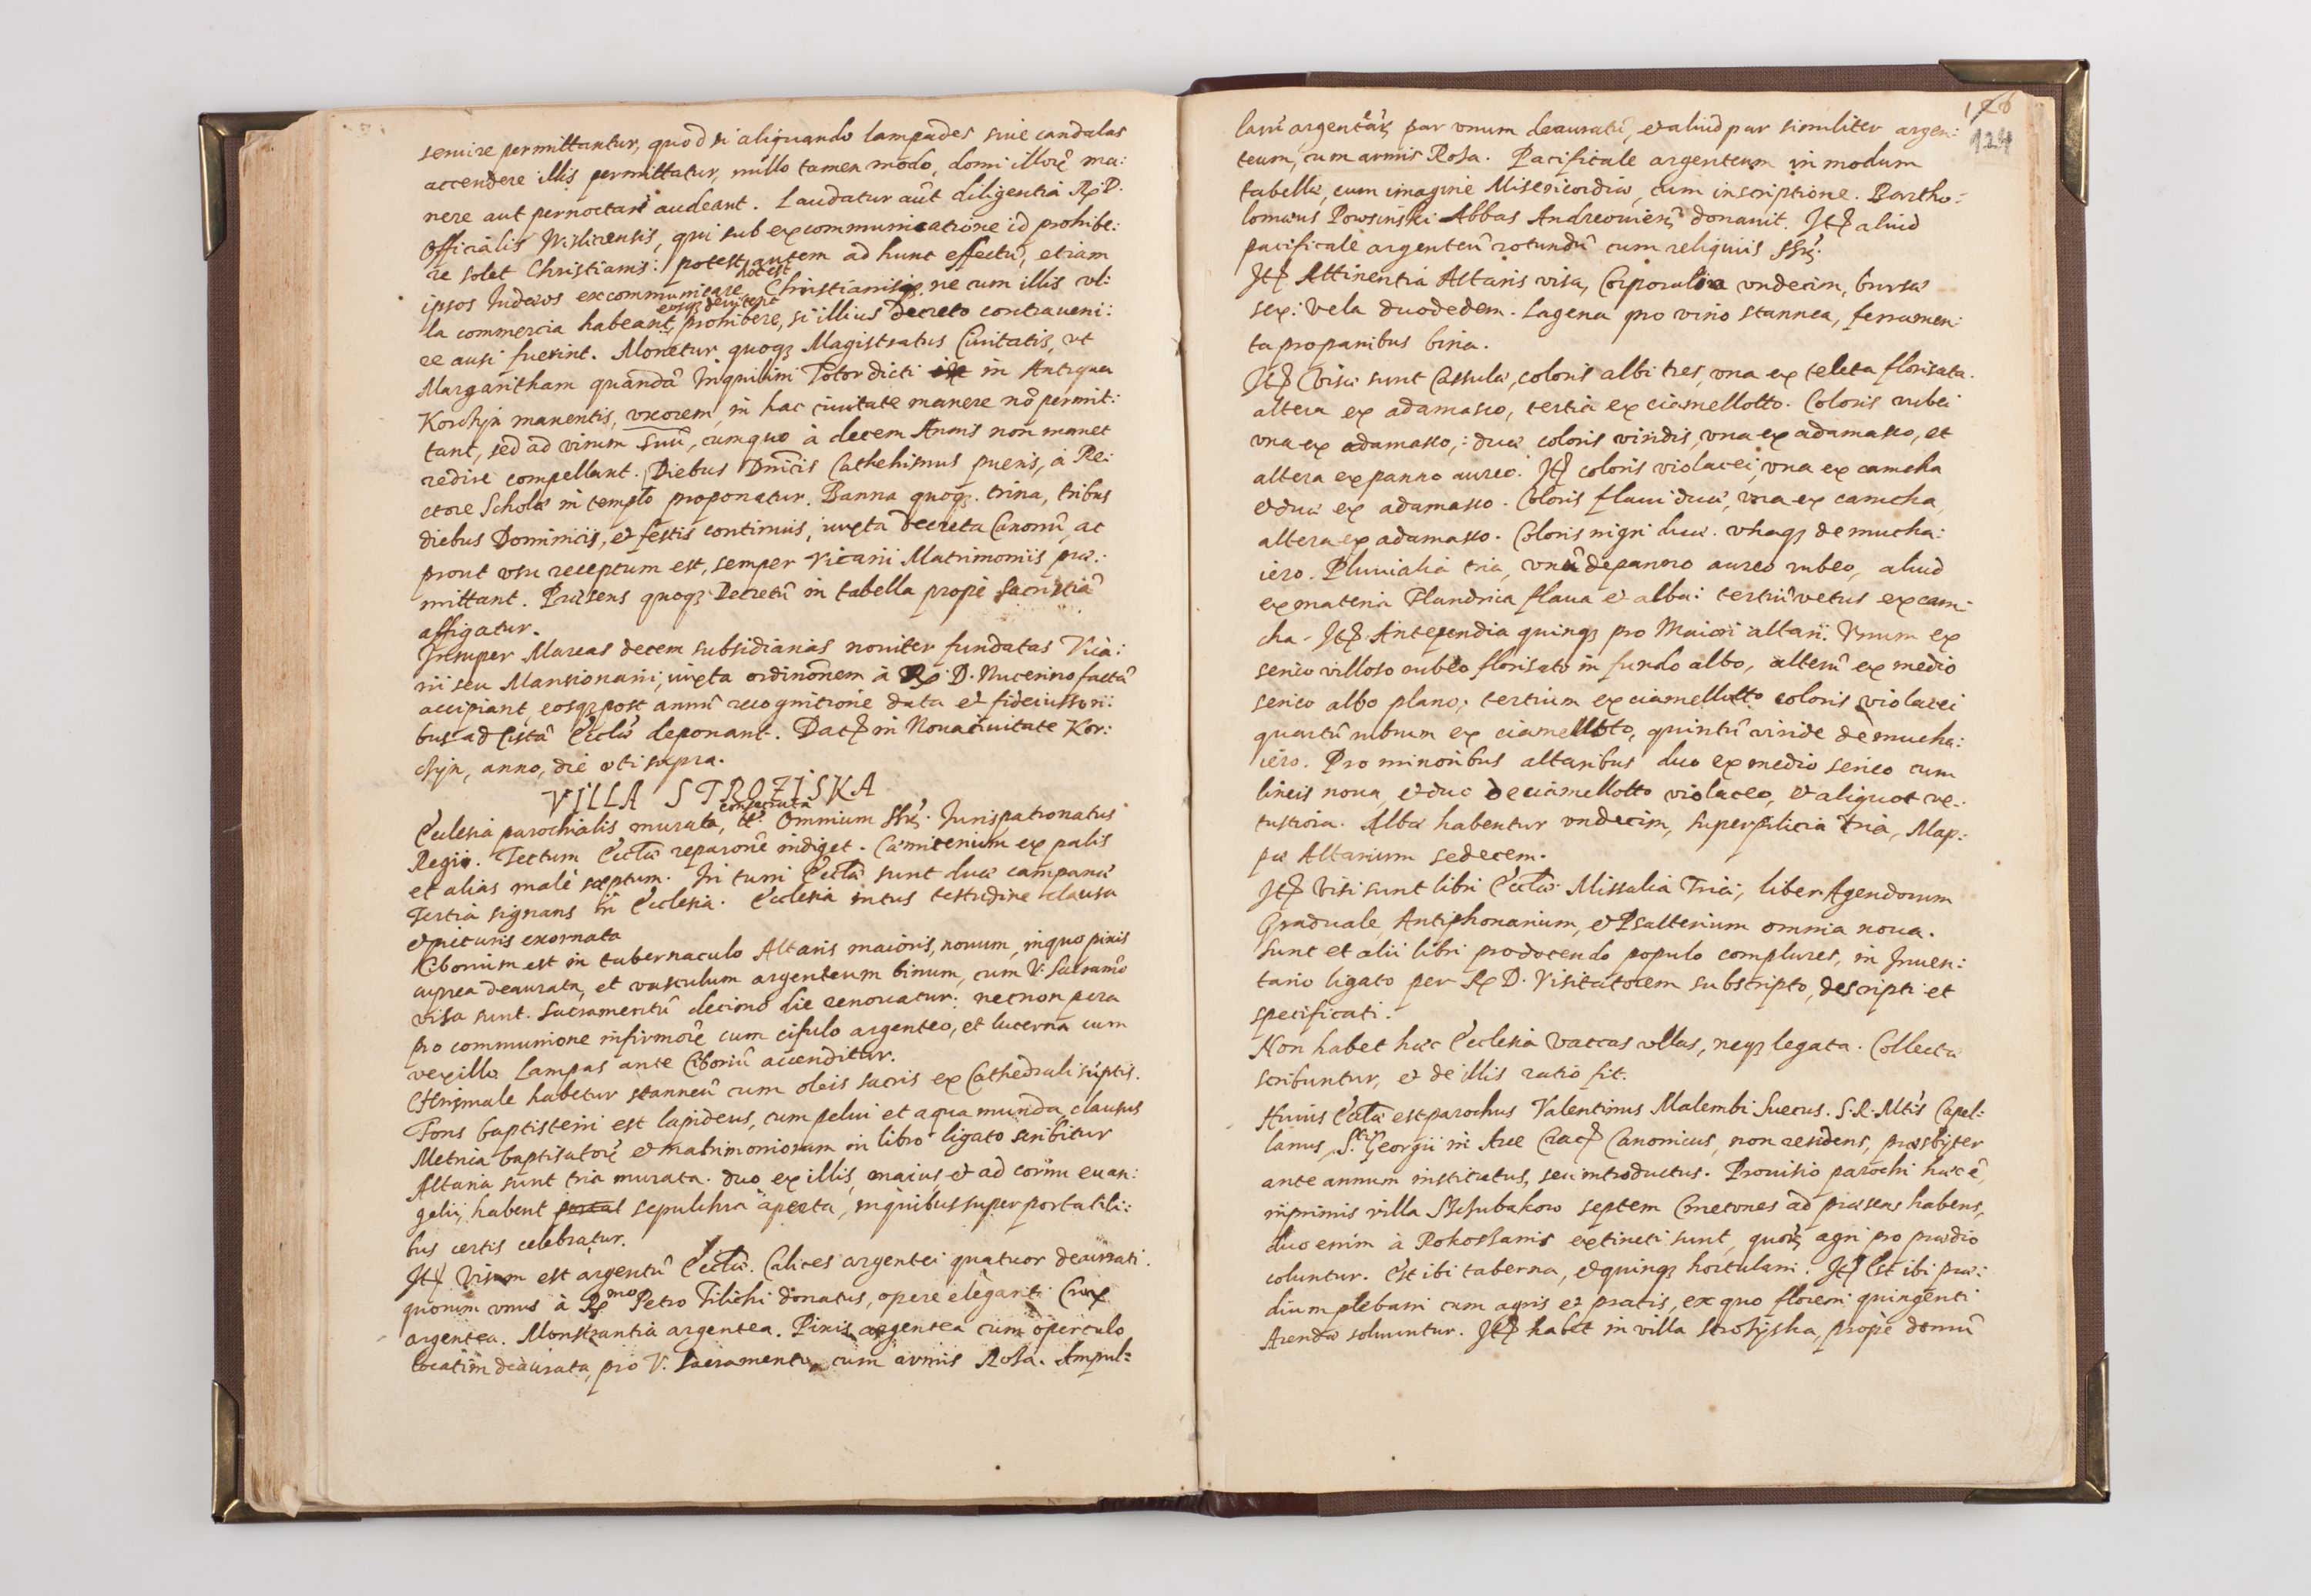 seruire permittantur, quod si aliquando lampades siue candelas
accendere illis permittatur, nullo tamen modo, domi illorũ ma:
nere aut pernoctare audeant. Laudatur aũt diligentia R. D.
Officialis Visliciensis, qui sub excommunicatione id prohibe:
re solet Christianis: potest autem ad hunc effectũ, etiam
ipsos Iudæos excommunicare, hoc est Christianis, ne cum illis vl:
la commercia habeant, eosq; deuitent prohibere, si illius decreto contraueni:
re ausi fuerint. Monetur quoq; Magistratus Ciuitatis, vt
Margaritham quandã Inquilini Totor dicti in Antiqua
Korchijn manentis, vxorem, in hac ciuitate manere nõ permit:
tant, sed ad virum suũ, cum quo à decem Annis non manet
redire compellant. Diebus Dnicis Cathehismus pueris, à Re:
ctore Scholæ in templo proponatur. Banna quoq; trina, tribus
diebus Dominicis, et festis continuis, iuxta decreta Canonũ, ac
prout vsu receptum est, semper Vicarii Matrimoniis præ:
mittant. Præsens quoq; Decretũ in tabella propè Sacristiã
affigatur.
Insuper Marcas decem subsidianas nouiter fundatas Vica:
rii seu Mansionarii, iuxta ordinõnem à R. D. Nucerino factã
accipiant, eosq; post annũ recognitione data et fideiussori:
bus ad Cistã Ecclæ deponant. Dat in Noua ciuitate Kor:
chijn, anno, die vti supra.
VILLA STROZISKA
Ecclesia parochialis murata, consecrata, tt. Omnium SSrũ. Iurispatronatus
Regii. Tectum Ecclæ reparõne indiget. Cæmiterium ex palis
et alias malè sæptum. In turri Ecclæ sunt duæ campanæ
Tertia signans in Ecclesia. Ecclesia intus testudine clausa
et picturis exornata
Ciborium est in tabernaculo Altaris maioris, nouum, in quo pixis
cuprea deaurata, et vasculum argenteum binum, cum V. Sacramẽto
visa sunt. Sacramentũ decimo die renouatur: necnon pera
pro communione infirmorũ cum cifulo argenteo, et lucerna cum
vexillo. Lampas ante Ciboriũ accenditur.
Chrismale habetur stanneũ cum oleis sacris ex Cathedrali sũptis.
Fons baptisterii est lapideus, cum pelui et aqua munda, clausus
Metrica baptisatorũ et matrimoniorum in libro ligato scribitur
Altaria sunt tria murata. duo ex illis, maius, et ad cornu euan:
gelii, habent sepulchra aperta, in quibus super portatili:
bus certis celebratur.
It Visum est argentũ Ecclæ. Calices argentei quatuor deaurati.
quorum vnus à R mo Petro Tilichi donatus, opere eleganti. Crux
argentea. Monstrantia argentea. Pixis argentea cum operculo
locatim deaurata, pro V. Sacramento, cum armis Rosa. Ampul:
126
124
larũ argentearũ par vnum deauratũ, et aliud par similiter argen:
teum, cum armis Rosa. Pacificale argenteum in modum
tabellæ, cum imagine Misericordiæ, cum inscriptione. Bartho:
lomæus Powsinski Abbas Andreouieñ donauit. It aliud
pacificale argenteũ rotundũ cum reliquiis SSrũ.
It Attinentia Altaris visa, Corporalia vndecim, bursæ
sex: Vela duodedem. Lagena pro vino stannea, ferramen:
ta pro panibus bina.
It Visæ sunt Casulæ, coloris albi tres, vna ex teleta florisata.
altera ex adamasco, tertia ex ciamellotto. Coloris rubei
vna ex adamasco,: duæ coloris viridis, vna ex adamasco, et
altera ex panno aureo. It coloris violacei, vna ex camcha
et duæ ex adamasco. Coloris flaui duæ, vna ex camcha,
altera ex adamasco. Coloris nigri duæ. vtraq; de mucha:
iero. Pluuialia tria, vnũ de panno aureo rubeo, aliud
ex materia Flandrica flaua et alba: tertiũ vetus ex cam:
cha. It Antependia quinq; pro Maiori altari. Vnum ex
serico villoso rubeo florisato in fundo albo, alterũ ex medio
serico albo plano, tertium ex ciamellotto coloris violacei
quartũ rubrum ex ciamellotto, quintũ viride de mucha:
iero. Pro minoribus altaribus duo ex medio serico cum
lineis noua, et duo de ciamellotto violaceo, et aliquot ve:
tustiora. Albæ habentur vndecim, superpilicia tria, Map:
pæ Altarium sedecem.
It Visi sunt libri Ecclæ. Missalia Tria, liber Agendorum
Graduale, Antiphonarium, et Psalterium omnia noua.
Sunt et alii libri pro docendo populo complures, in Inuen:
tario ligato per R. D. Visitatorem subscripto, descripti et
specificati.
Non habet hæc Ecclesia vaccas vllas, neq; legata. Collectæ
scribuntur, et de illis ratio fit.
Huius Ecclæ est parochus Valentinus Malembi Suecus. S. R. Mtis Capel:
lanus, Sti Georgii in Arce Crac Canonicus, non residens, præsbyter
ante annum institutus, seu introductus. Prouisio parochi hæc ẽ,
inprimis villa septem Cmetones ad præsens habens,
duo enim à Rokossanis extincti sunt, quorũ agri pro prædio
coluntur. Est ibi taberna, et quinq; hortulani. It Est ibi præ:
dium plebani cum agris et pratis, ex quo floreni quingenti
Arendæ soluuntur. It habet in villa Strosijska, propè domũ